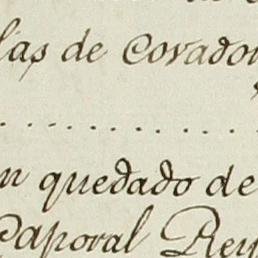 las de Covado
. . . . . . . . . .
n quedado de
caporal Rey